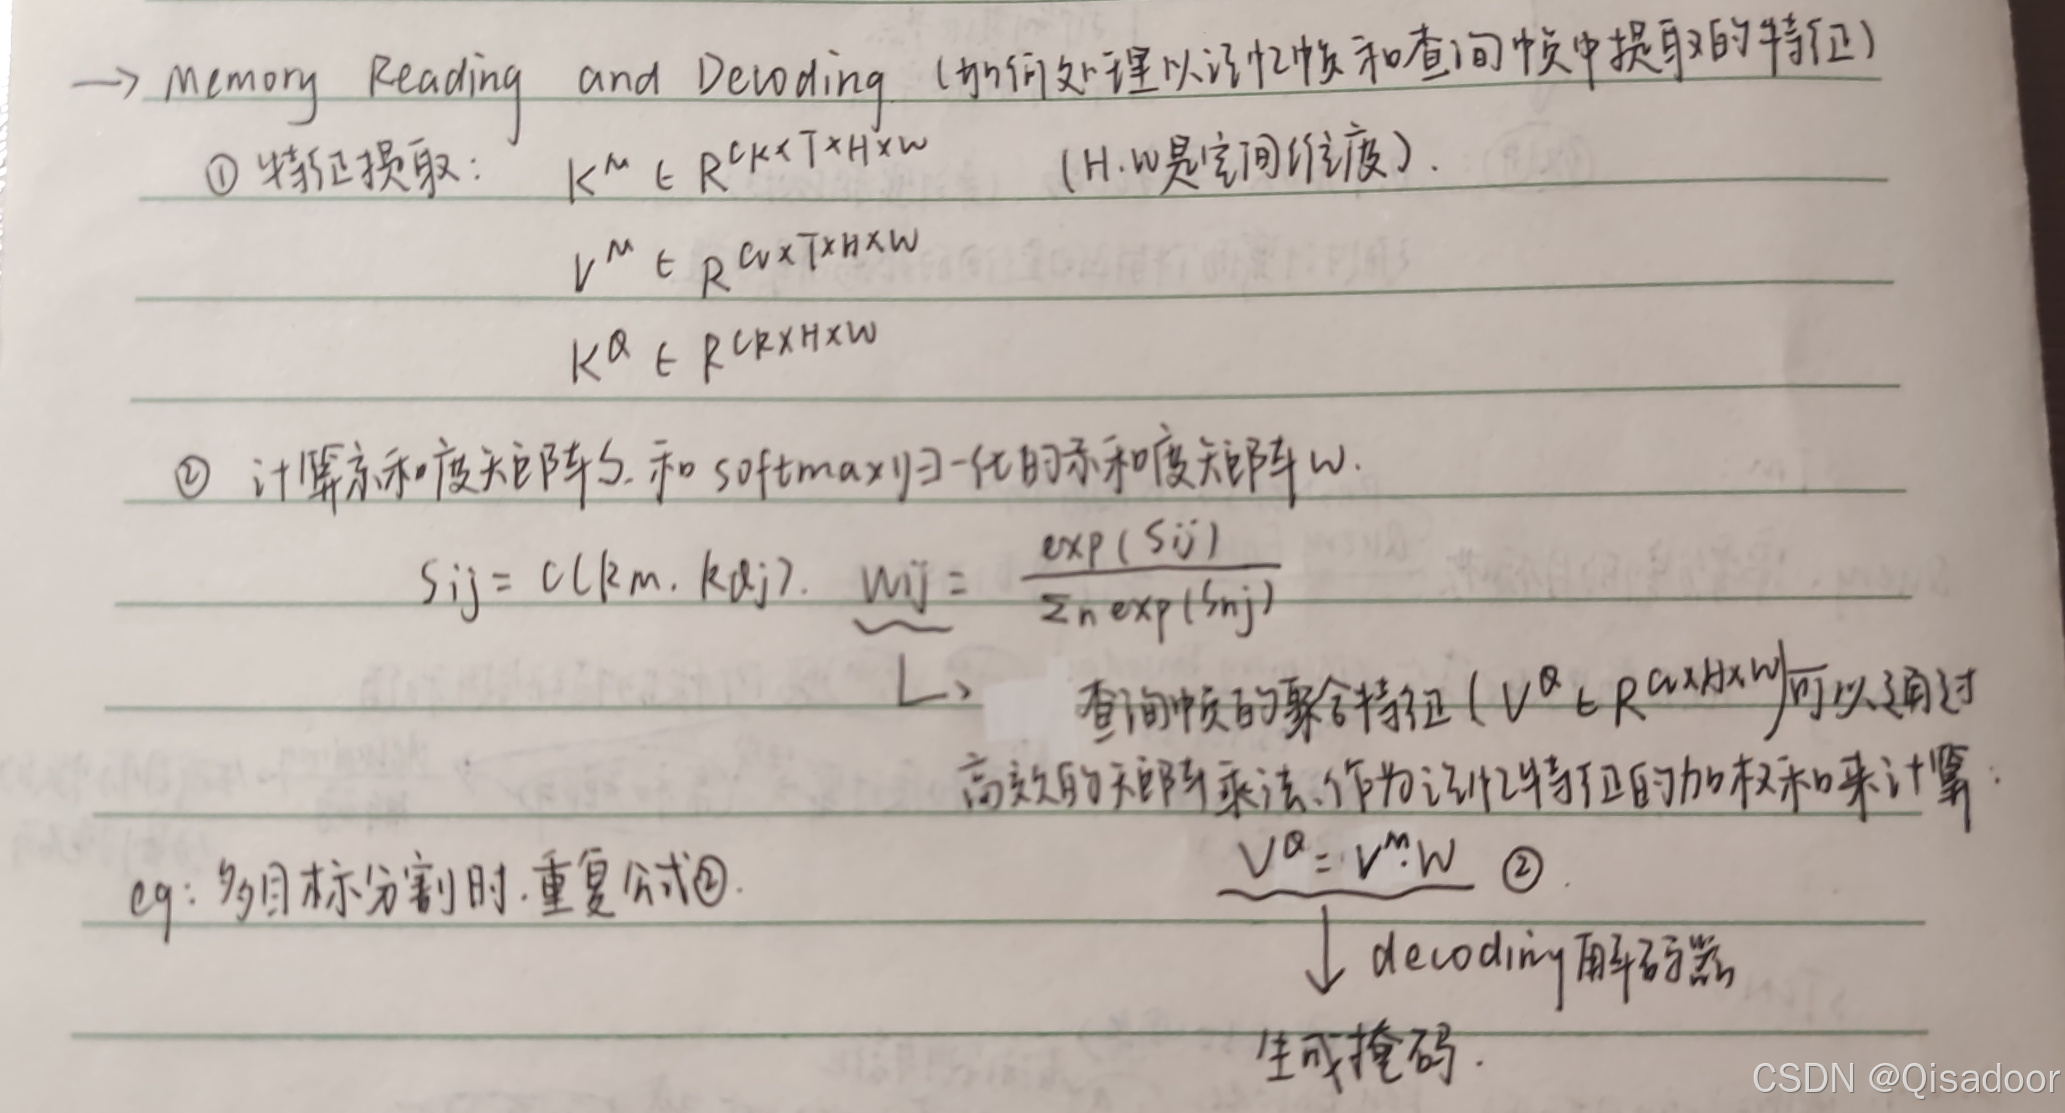 → Memory Reading and Decoding (如何处理以记忆帧和查询帧中提取的特征)
① 特征提取: K^M ∈ R^{CK×T×H×W} (H.W是空间维度).
V^M ∈ R^{CV×T×H×W}
K^Q ∈ R^{CK×H×W}
② 计算亲和度矩阵S.和softmax归一化的亲和度矩阵W.
Sij = C(km. kQj). Wij = exp(Sij) / Σn exp(Snj)
↳ 查询帧的聚合特征(V^Q ∈ R^{CV×H×W})可以通过
高效的矩阵乘法.作为记忆特征的加权和来计算:
V^Q = V^M·W ②.
eg: 多目标分割时.重复公式②.
↓ decoding解码器
生成掩码.
CSDN @Qisadoor